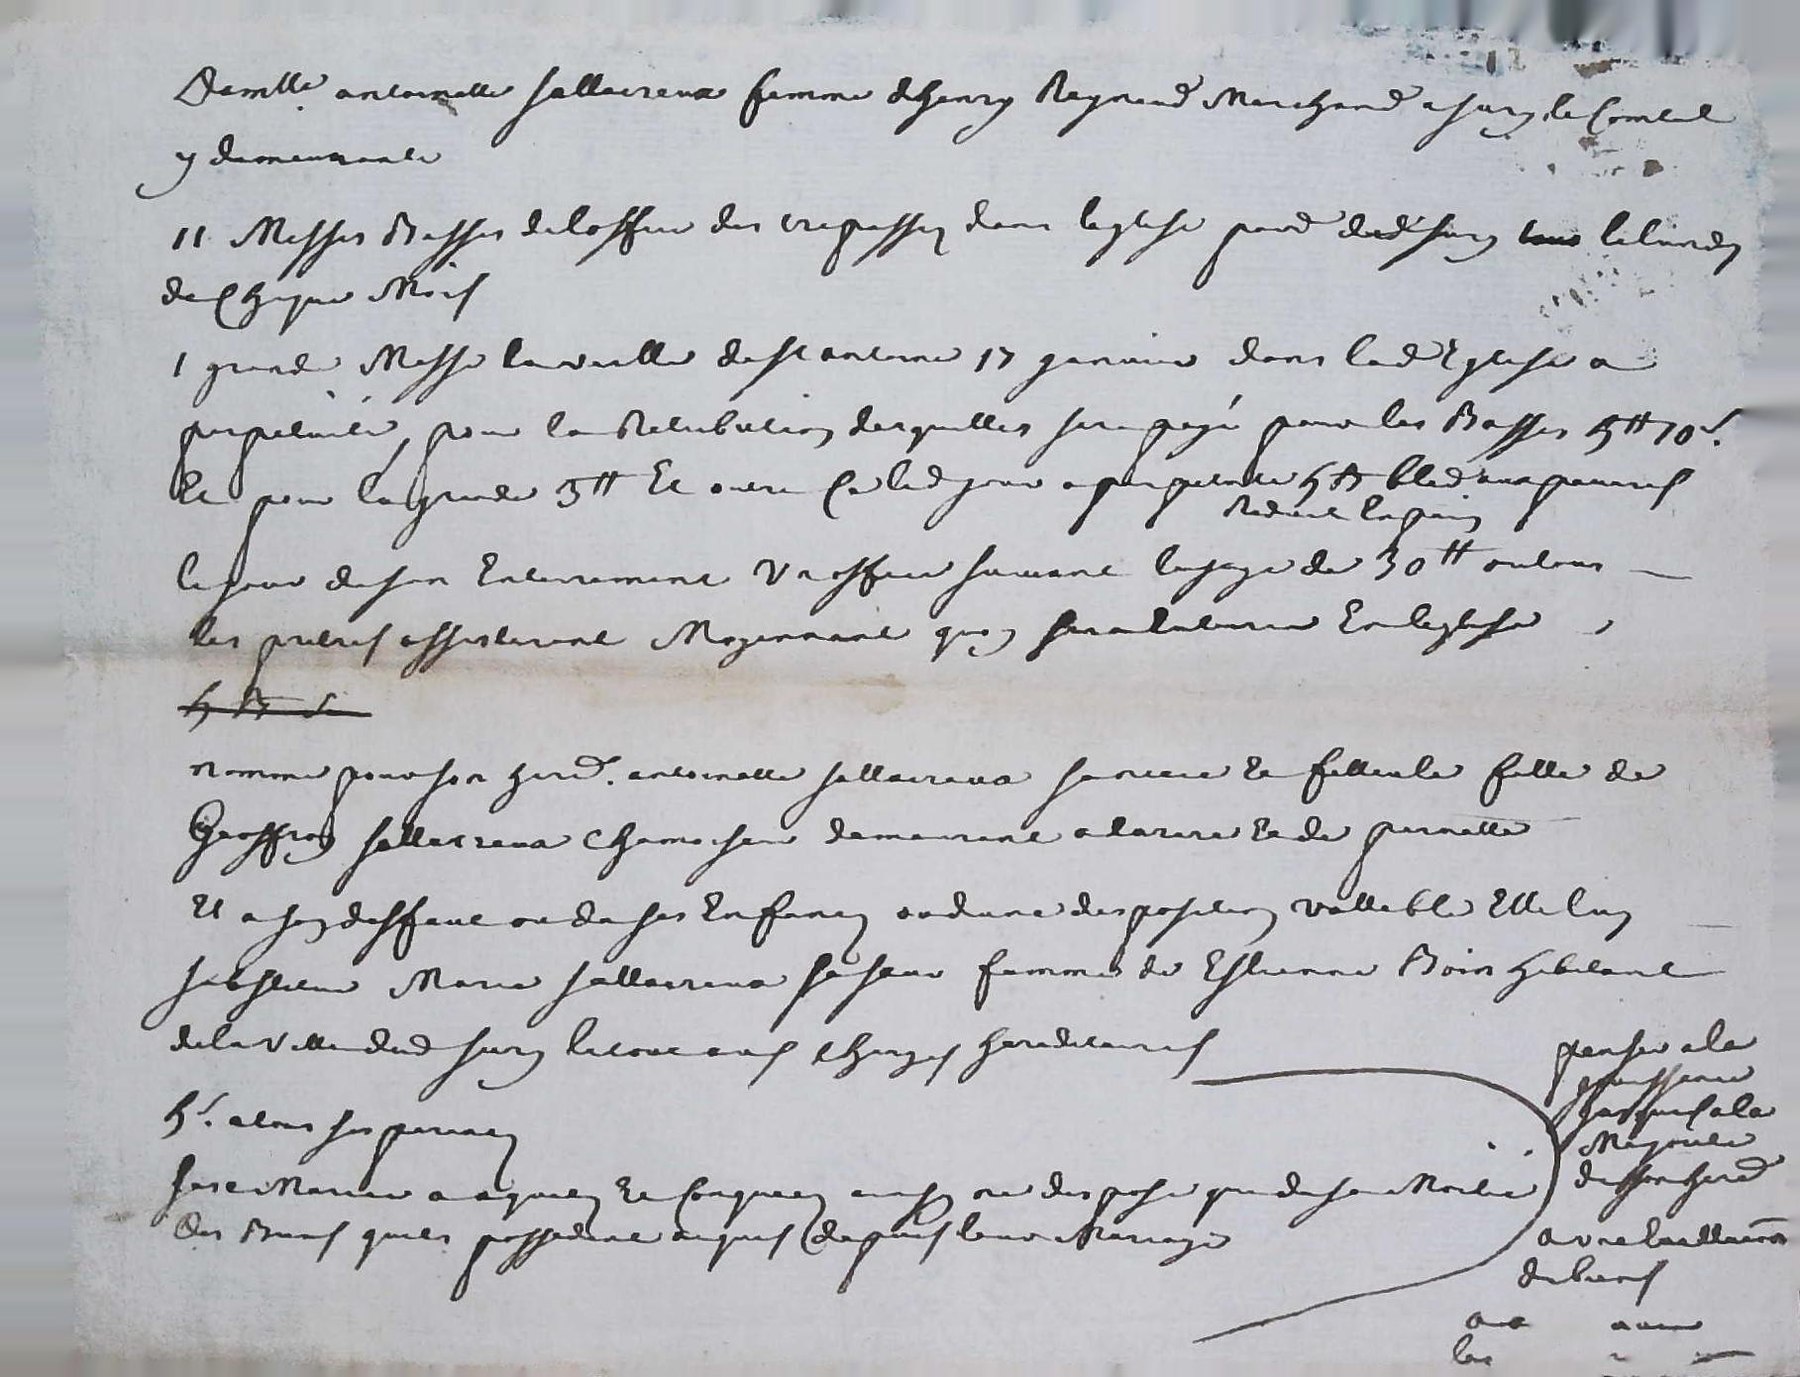 Demlle antoinette sallaireux femme dhenry Reynaud Marchand a Sury le Comtal
y demeurante
11 Messes Basses de loffice des trepassez dans leglise pard dud Sury tous le lundy
de Chaque Mois
1 grande Messe la veille de St antoine 17 janvier dans lad Eglise a
perpetuité, pour la Retribution desquelles sera payé pour les Basses 5tt 10s.
Et pour la grande 3tt Et outre ce led jour a perpetuité bled aux pauvres
Reduit en pain
le jour de son Enterrement Un office suivant lusage de 30tt ou tous
les pretres assisteront Moyennant quoy sera Enterrée En leglise
nomme pour son herd. antoinette sallaireux sa niece Et filleule fille de
Geoffroy sallaireux Chamoiseur demeurant Et de pernette
Et a son deffaut ou de ses Enfans ou dune disposition vallable Elle luy
substitue Marie sallaireux sa soeur femme de Estienne Boin habitant
de la Ville dud Sury le tout aux Charges hereditaires
5s. a tous ses parens
son Mary a aquets Et Conquets ainsy ne dispose que de sa Moitié
des Biens quils possedent aquis depuis leur Mariage
penser a la
grossesse
jusques a la
Majorité
de son herd
des biens